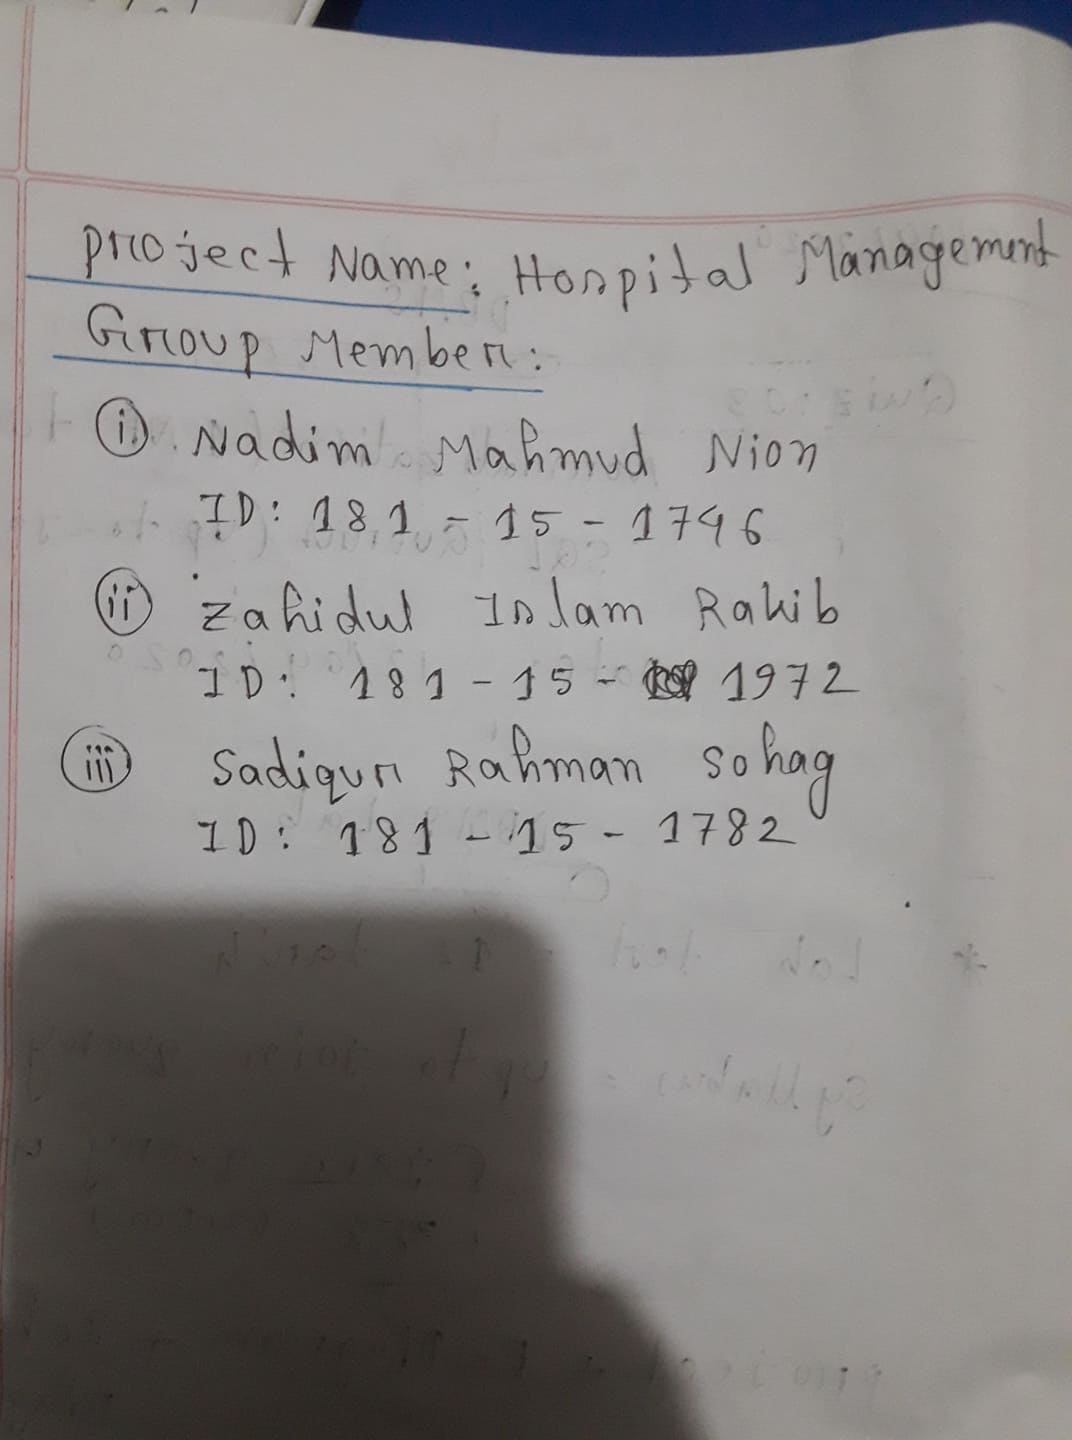 Project Name: Hospital Management
Group Member:
i Nadim Mahmud Nion
ID: 181-15-1746
ii Zahidul Islam Rakib
ID: 181-15-1972
iii Sadiqur Rahman Sohag
ID: 181-15-1782